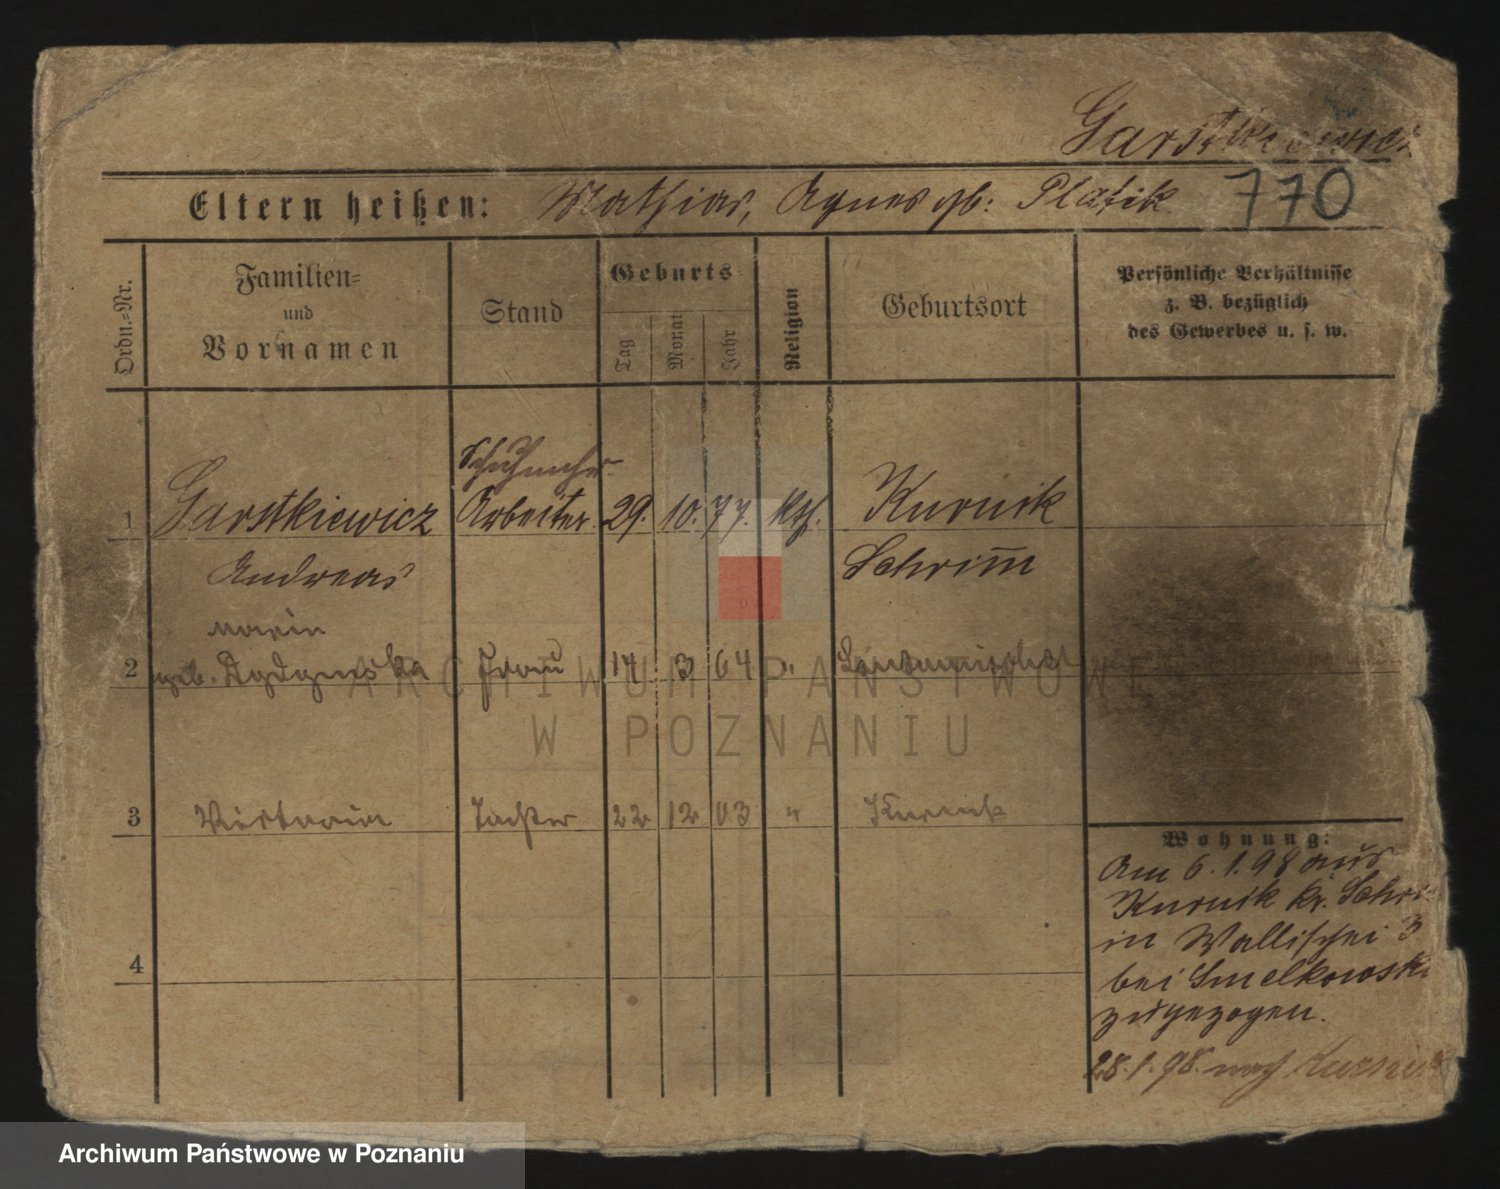 Garstkiewicz
Eltern heißen: Mathias, Agnes gb: Platik
770
Ordn.-Nr.
Familien-
und
Vornamen
Stand
Geburts
Tag
Monat
Jahr
Religion
Geburtsort
Persönliche Verhältnisse
z. B. bezüglich
des Gewerbes u. s. w.
Schuhmacher
1 Garstkiewicz Arbeiter 29. 10. 77. kth. Kurnik
Andreas Schrim̅
Marie
2 geb. Frau 14 3 04 "
3 Victoria Tochter 22 12 03 " Kurnik
4
Wohnung:
Am 6.1.98 aus
Kurnik kr. Schri
in Wallischei 3
bei Smelkowski
zugezogen.
28.1.98. nach Kurnik
ARCHIWUM PAŃSTWOWE
W POZNANIU
Archiwum Państwowe w Poznaniu